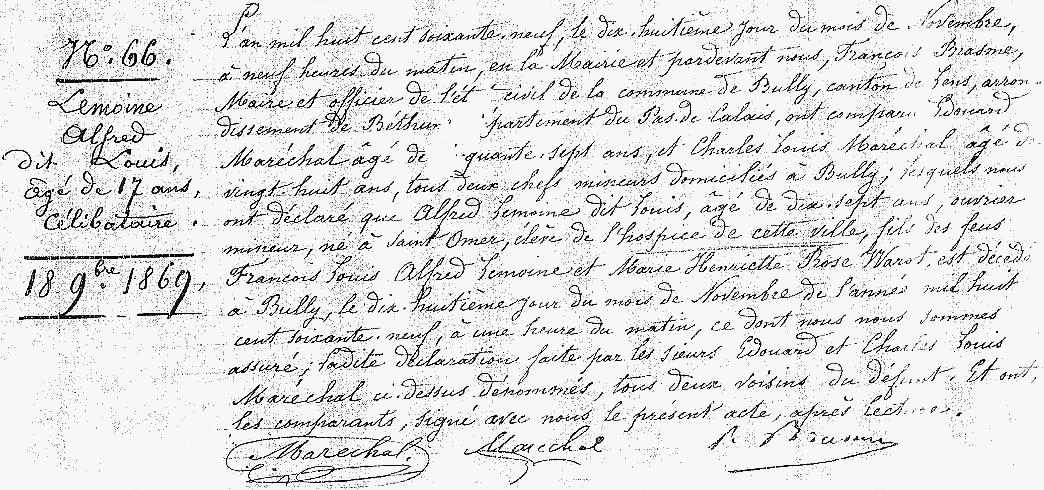 N.o 66.
Lemoine
Alfred
dit Louis,
âgé de 17 ans,
Célibataire.
18 9bre 1869,
L'an mil huit cent soixante-neuf, le dix-huitième jour du mois de Novembre,
à neuf heures du matin, en la Mairie et pardevant nous, François Brasme,
Maire et officier de l'ét civil de la commune de Bully, canton de Lens, arron-
dissement de Béthun partement du Pas-de-Calais, ont comparu Edouard
Maréchal âgé de quante-sept ans, et Charles Louis Maréchal âgé d
vingt huit ans, tous deux chefs mineurs domiciliés à Bully; lesquels nous
ont déclaré que Alfred Lemoine dit Louis, âgé de dix-sept ans, ouvrier
mineur, né à Saint Omer, élève de l'hospice de cette ville, fils des feus
François Louis Alfred Lemoine et Marie Henriette Rose Warot, est décédé
à Bully, le dix-huitième jour du mois de Novembre de l'année mil huit
cent soixante-neuf, à une heure du matin, ce dont nous nous sommes
assuré; ladite déclaration faite par les sieurs Edouard et Charles Louis
Maréchal ci-dessus dénommés, tous deux voisins du défunt. Et ont,
les comparants, signé avec nous le présent acte, après lect
Maréchal. Maréchal